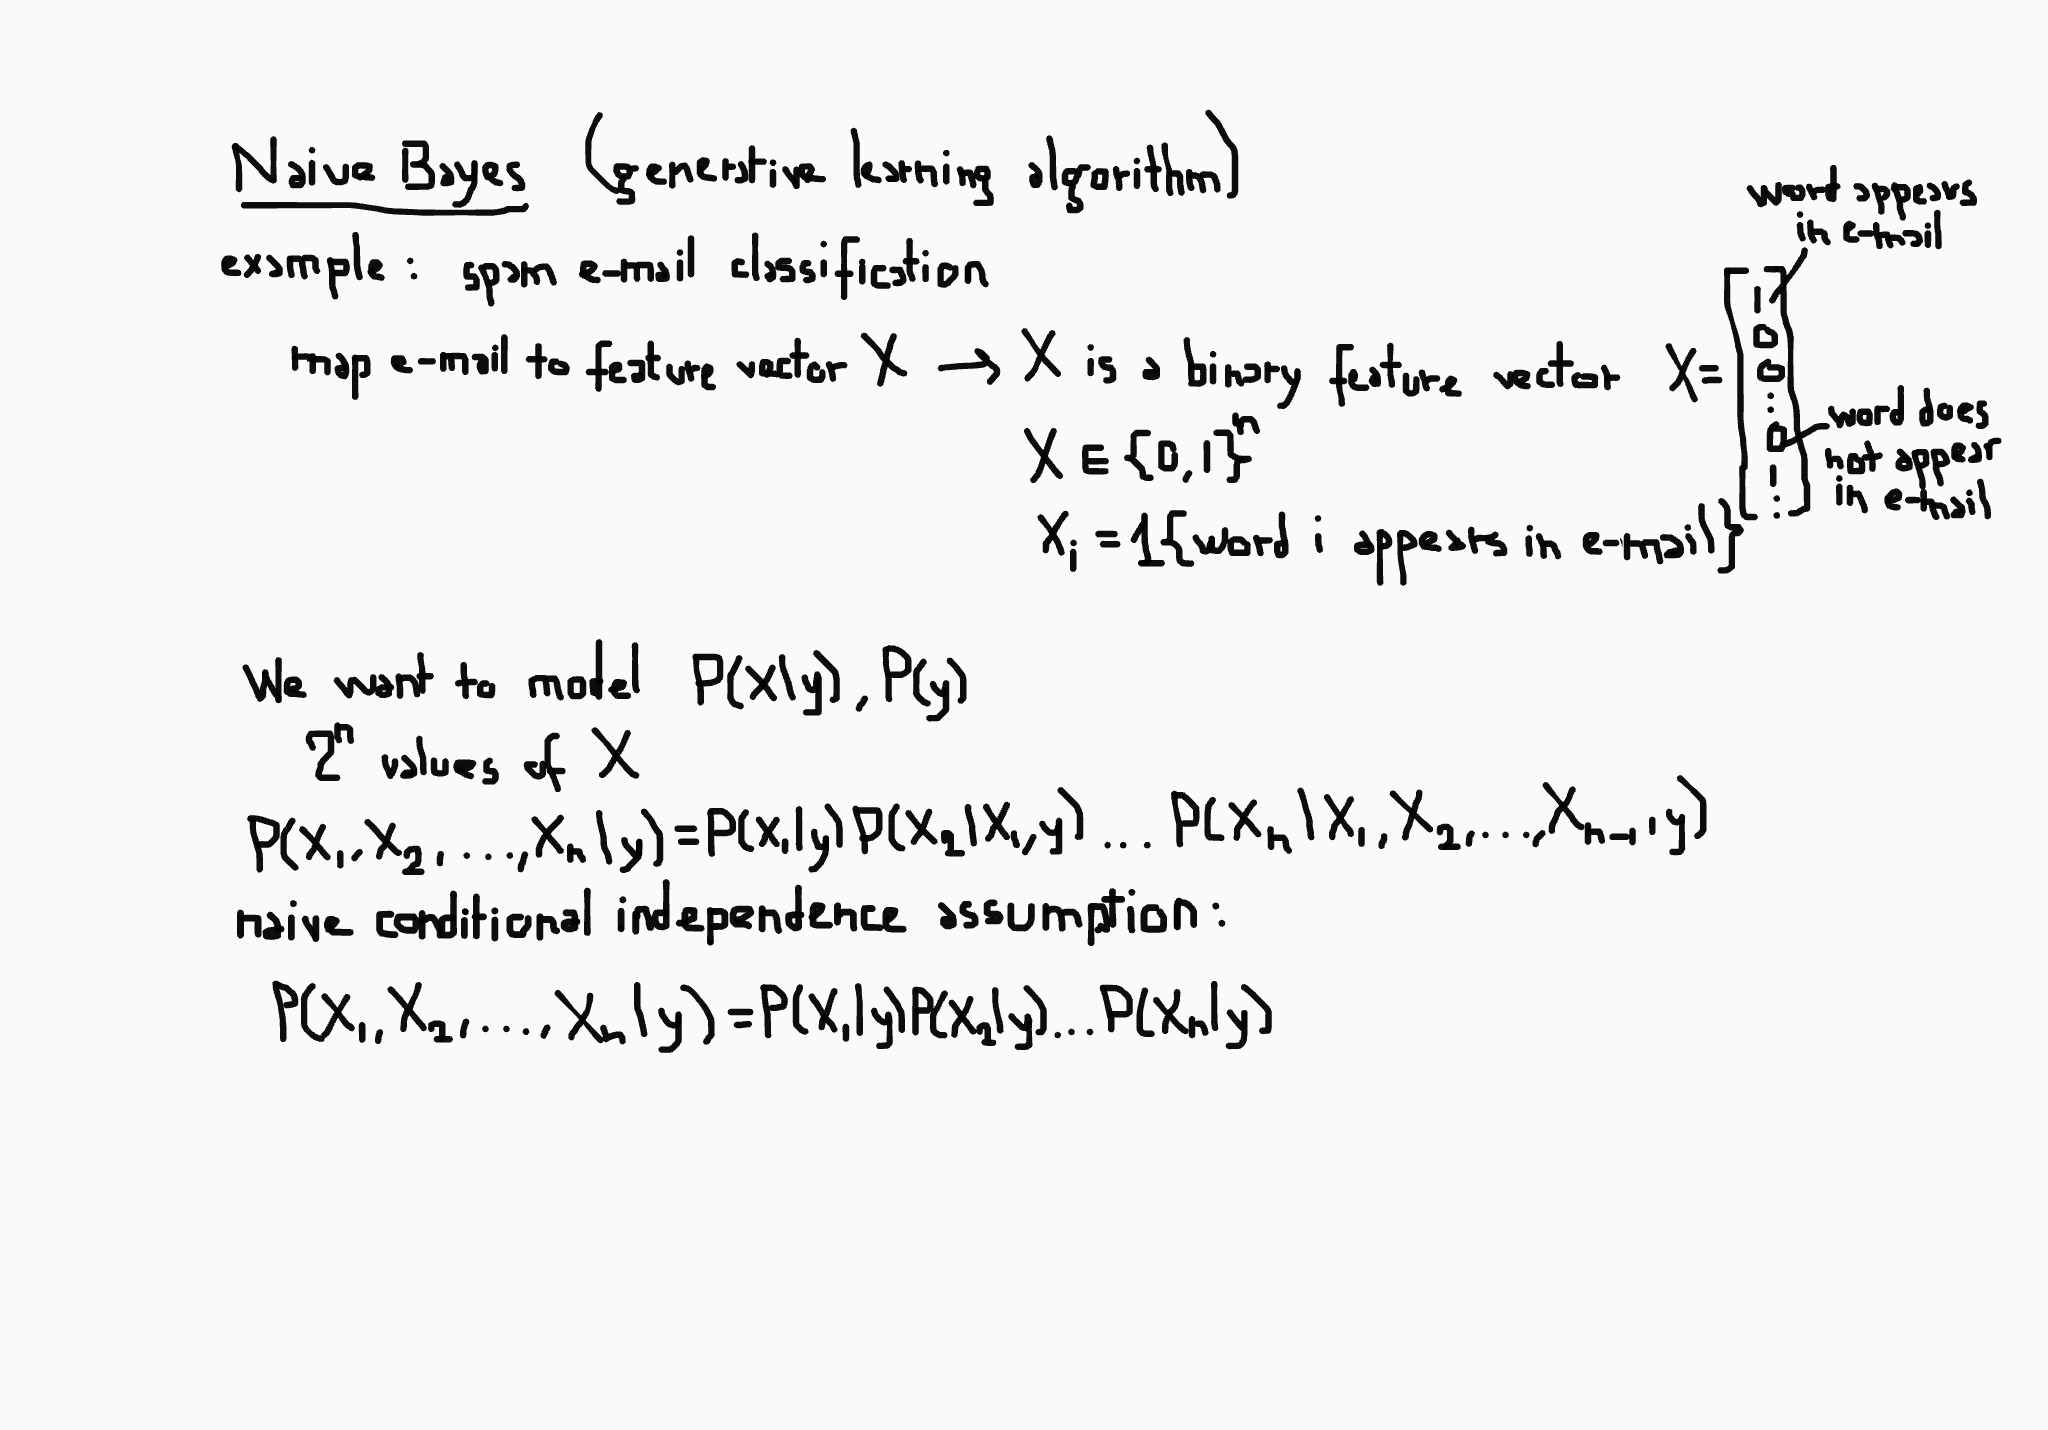 Naive Bayes (generative learning algorithm)
example: spam e-mail classification
map e-mail to feature vector X → X is a binary feature vector X = [1 0 0 ⋮ 0 1 ⋮]
word appears
in e-mail
word does
not appear
in e-mail
X ∈ {0,1}ⁿ
Xᵢ = 1{word i appears in e-mail}
We want to model P(X|y), P(y)
2ⁿ values of X
P(X₁, X₂, ..., Xₙ|y) = P(X₁|y) P(X₂|X₁, y) ... P(Xₙ|X₁, X₂, ..., Xₙ₋₁, y)
naive conditional independence assumption:
P(X₁, X₂, ..., Xₙ|y) = P(X₁|y) P(X₂|y) ... P(Xₙ|y)